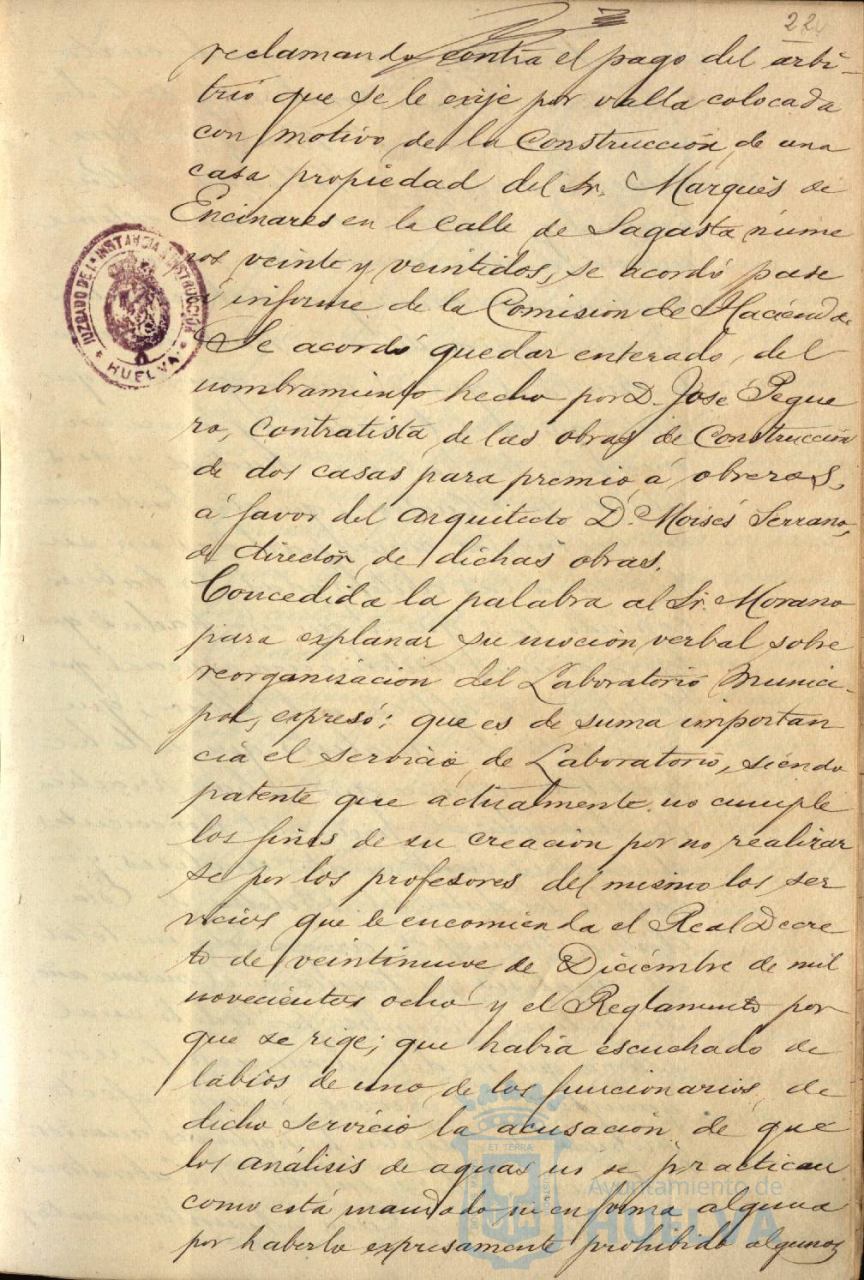 22
reclamando contra el pago del arbi-
trio que se le exije por valla colocada
con motivo de la Construcción de una
casa propiedad del Sr. Marqués de
Encinares en la calle de Sagasta núme
ros veinte y veintidos, se acordó pase
á informe de la Comision de Hacienda
Se acordó quedar enterado, del
nombramiento hecho por D. José Pegue
ro, Contratista de las obras de Construcción
de dos casas para premio á obreros,
á favor del arquitecto D. Moisés Serrano,
de director, de dichas obras.
Concedida la palabra al Sr. Morano
para explanar su moción verbal sobre
reorganización del Laboratorio Munici-
pal, expresó: que es de suma importan
cia el servicio de Laboratorio, siendo
patente que actualmente no cumple
los fines de su creación por no realizar
se por los profesores del mismo los ser
vicios que le encomienda el Real Decre
to de veintinueve de Diciembre de mil
novecientos ocho y el Reglamento por
que se rige; que había escuchado de
labios de uno de los funcionarios de
dicho servicio la acusación de que
los análisis de aguas no se practican
como está mandado ni en forma alguna
por haberlo expresamente prohibido algunos
JUZGADO DE 1ª INSTANCIA É INSTRUCCIÓN
* HUELVA *
ET TERRA
Ayuntamiento de
HUELVA